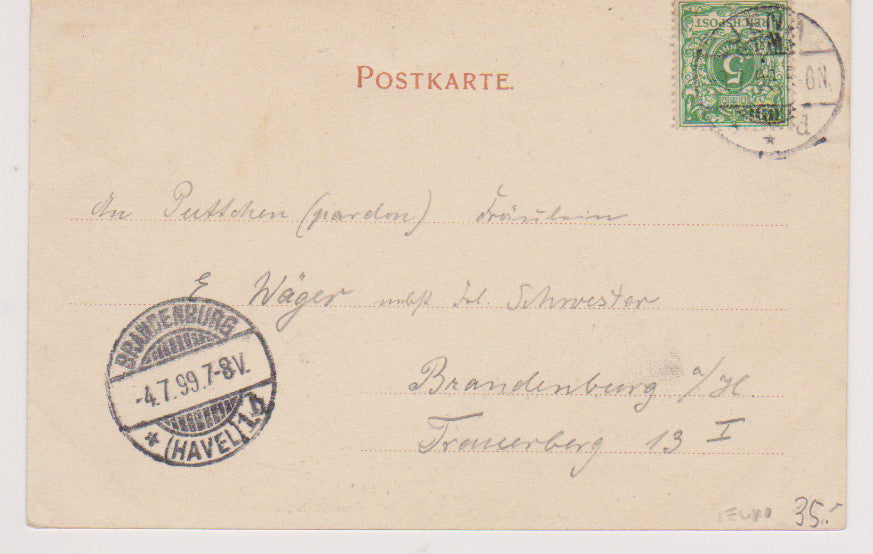 REICHSPOST
5
POSTKARTE.
6N.
d
An Puttchen (pardon) Fräulein
E Wäger nebst Frl Schwester
Brandenburg a/H.
13 I
BRANDENBURG
-4.7.99.7-8V.
* (HAVEL) 1 *
35.-